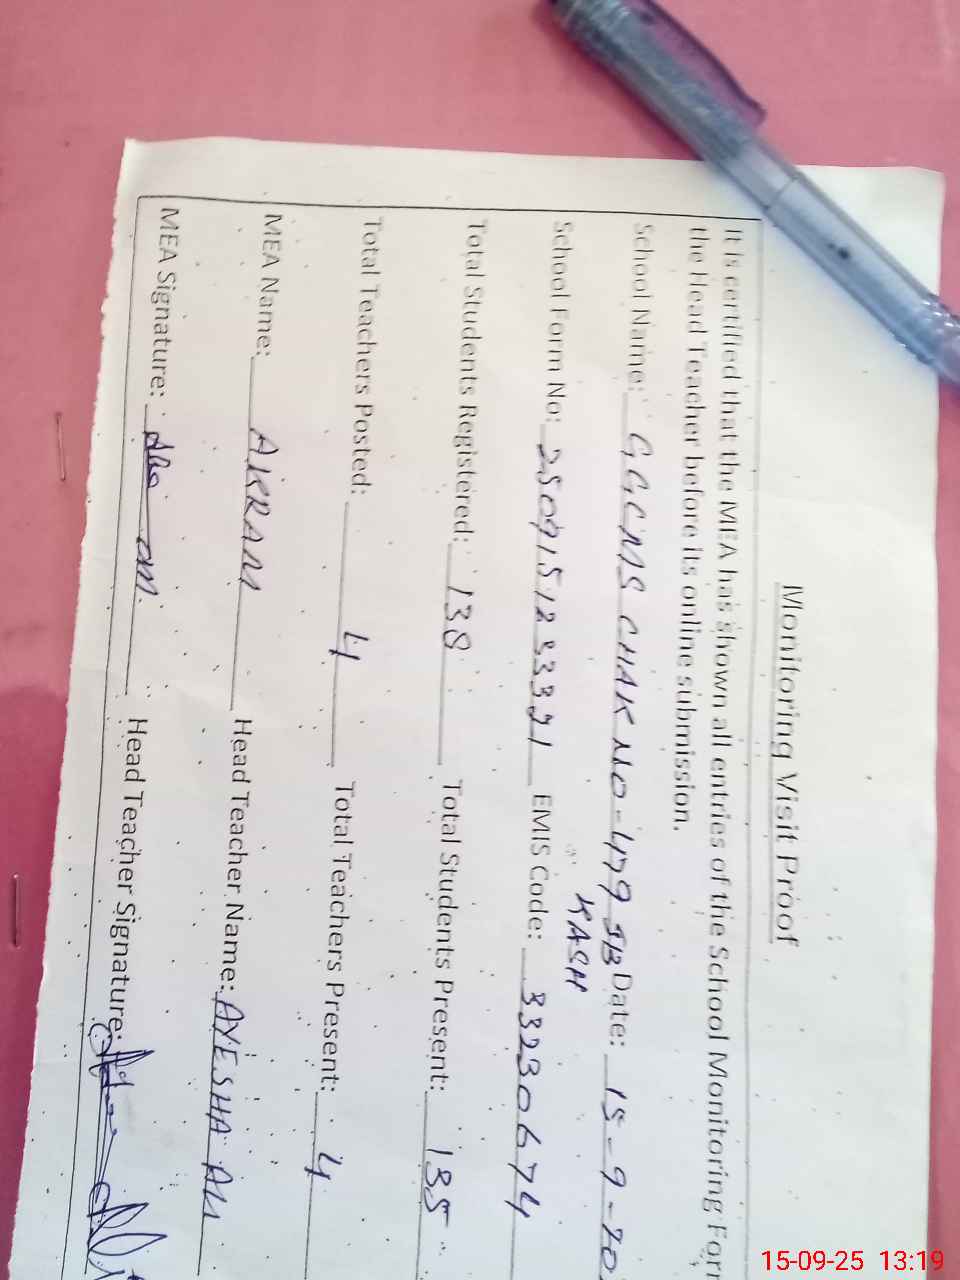 Monitoring Visit Proof
It is certified that the MEA has shown all entries of the School Monitoring For
the Head Teacher before its online submission.
School Name: GGCMS CHAK NO-479 JB Date: 15-9-20
KASH
School Form No: 25091512 33321 EMIS Code: 33230674
Total Students Registered: 138 Total Students Present: 135
Total Teachers Posted: 4 Total Teachers Present: 4
MEA Name: AKRAM Head Teacher Name: AYESHA
MEA Signature: Head Teacher Signature:
15-09-25 13:19